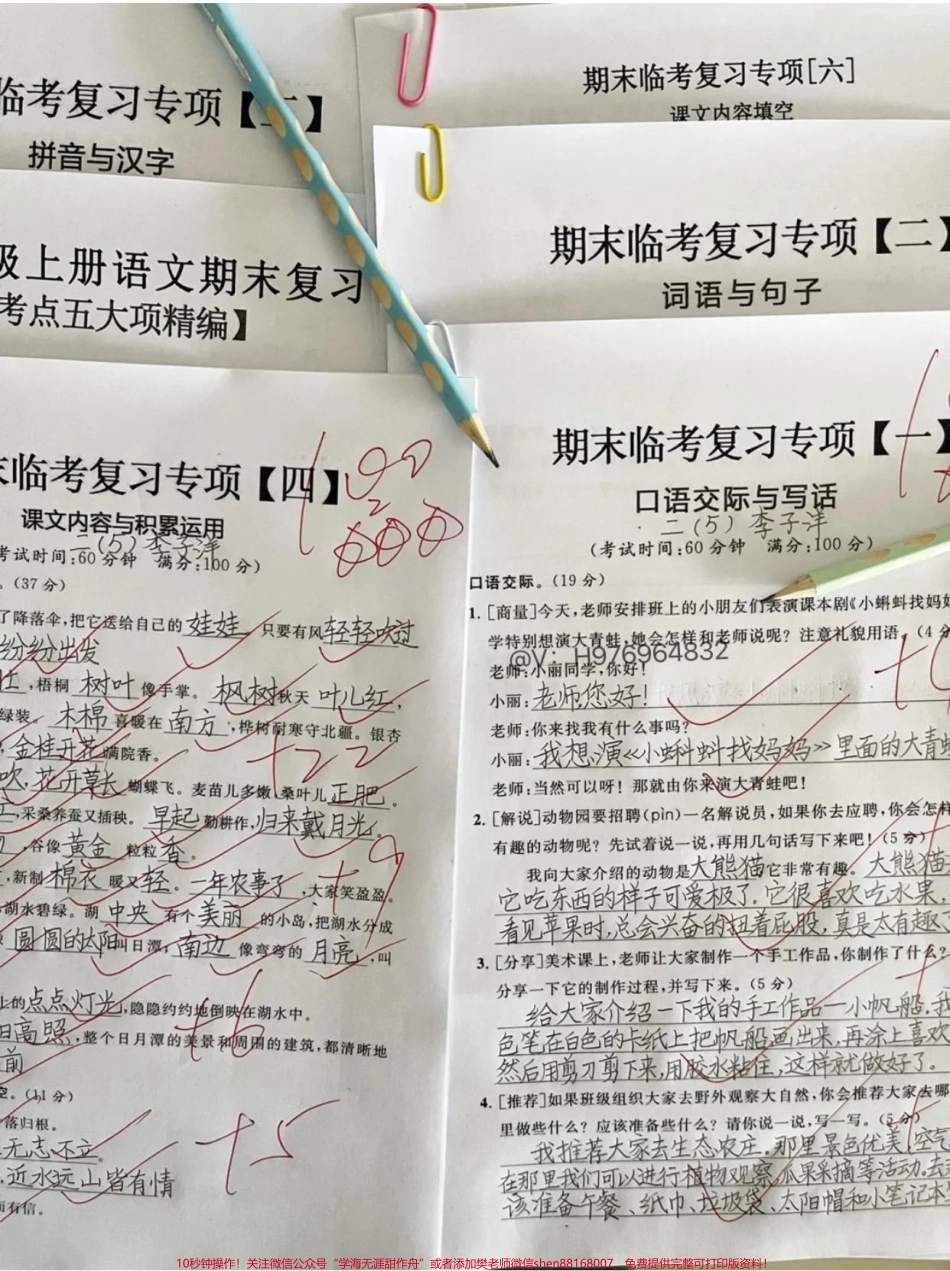 期末临考复习专项[六]
课文内容填空
临考复习专项【
拼音与汉字
期末临考复习专项【二】
词语与句子
级上册语文期末复习
考点五大项精编】
末临考复习专项【四】
100
课文内容与积累运用
二(5) 李子洋
考试时间:60分钟 满分:100分)
。(37分)
了降落伞,把它送给自己的 娃娃 只要有风轻轻吹过
纷纷出发
,梧桐 树叶 像手掌。 枫树秋天 叶儿红,
绿装。 木棉 喜暖在 南方 ,桦树耐寒守北疆。银杏
,金桂开花满院香。
吹,花开草长 蝴蝶飞。麦苗儿多嫩,桑叶儿正肥。
,采桑养蚕又插秧。 早起 勤耕作,归来戴月光。
,谷像 黄金 粒粒 香。
,新制 棉衣 暖又轻。一年农事了,大家笑盈盈。
湖水碧绿。湖 中央 有个 美丽 的小岛,把湖水分成
圆圆的太阳叫日潭,南边 像弯弯的 月亮,叫
上的点点灯光,隐隐约约地倒映在湖水中。
阳高照,整个日月潭的美景和周围的建筑,都清晰地
前
+22
+9
+6
空。(11分)
落归根。
无志不立。
,近水远山皆有情
而有信。
+5
期末临考复习专项【一】
口语交际与写话
二(5) 李子洋
(考试时间:60分钟 满分:100分)
口语交际。(19分)
1.[商量]今天,老师安排班上的小朋友们表演课本剧《小蝌蚪找妈妈
学特别想演大青蛙,她会怎样和老师说呢?注意礼貌用语。(4分
@V:H976964832
老师:小丽同学,你好!
小丽:老师,您好!
老师:你来找我有什么事吗?
小丽:我想演《小蝌蚪找妈妈》里面的大青蛙
老师:当然可以呀!那就由你来演大青蛙吧!
2.[解说]动物园要招聘(pìn)一名解说员,如果你去应聘,你会怎样
有趣的动物呢?先试着说一说,再用几句话写下来吧!(5分)
我向大家介绍的动物是大熊猫它非常有趣。大熊猫
它吃东西的样子可爱极了。它很喜欢吃水果,
看见苹果时,总会兴奋的扭着屁股,真是太有趣
3.[分享]美术课上,老师让大家制作一个手工作品,你制作了什么?
分享一下它的制作过程,并写下来。(5分)
给大家介绍一下我的手工作品—小帆船,我
色笔在白色的卡纸上把帆船画出来,再涂上喜欢
然后用剪刀剪下来,用胶水粘住,这样就做好了。
4.[推荐]如果班级组织大家去野外观察大自然,你会推荐大家去哪
里做些什么?应该准备些什么?请你说一说,写一写。(5分)
我推荐大家去生态农庄。那里景色优美,空气
在那里我们可以进行植物观察,瓜果采摘等活动,去
该准备午餐、纸巾、垃圾袋、太阳帽和小笔记本
10秒钟操作!关注微信公众号“学海无涯甜作舟”或者添加樊老师微信shen88168007 免费提供完整可打印版资料!